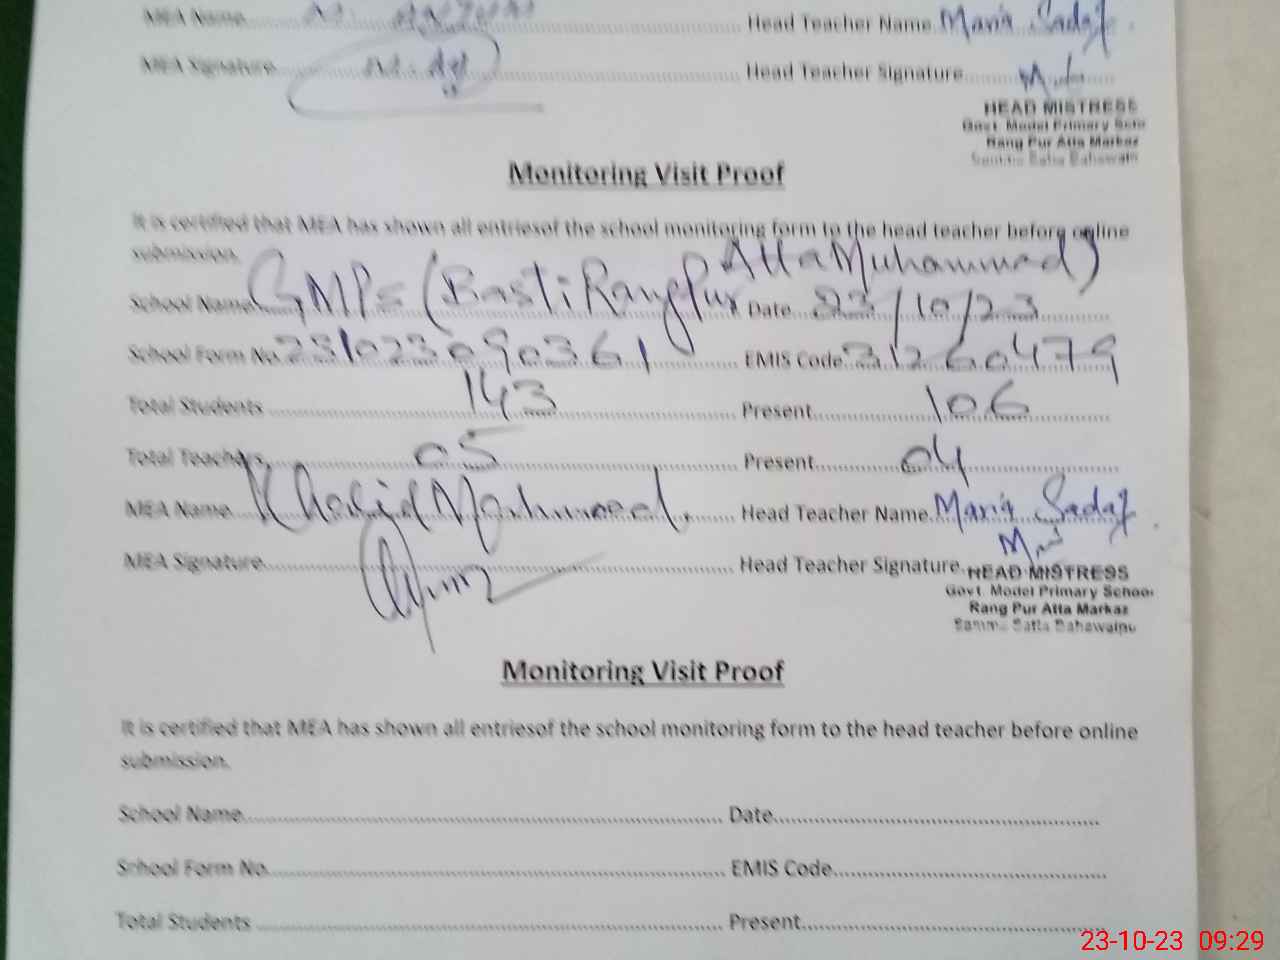 MEA Name Head Teacher Name Maria Sadaf
MEA Signature Head Teacher Signature
HEAD MISTRESS
Govt. Model Primary Scho
Rang Pur Atta Markaz
Samma Satta Bahawalp
Monitoring Visit Proof
It is certified that MEA has shown all entriesof the school monitoring form to the head teacher before online
submission.
School Name GMPS (Basti Rangpur Atta Muhammad) Date 23/10/23
School Form No. 231023090361 EMIS Code 31260479
Total Students 143 Present 106
Total Teachers 05 Present 04
MEA Name Khalid Mahmood Head Teacher Name Maria Sadaf
MEA Signature Head Teacher Signature
HEAD MISTRESS
Govt. Model Primary School
Rang Pur Atta Markaz
Samma Satta Bahawalpu
Monitoring Visit Proof
It is certified that MEA has shown all entriesof the school monitoring form to the head teacher before online
submission.
School Name Date
School Form No. EMIS Code
Total Students Present
23-10-23 09:29